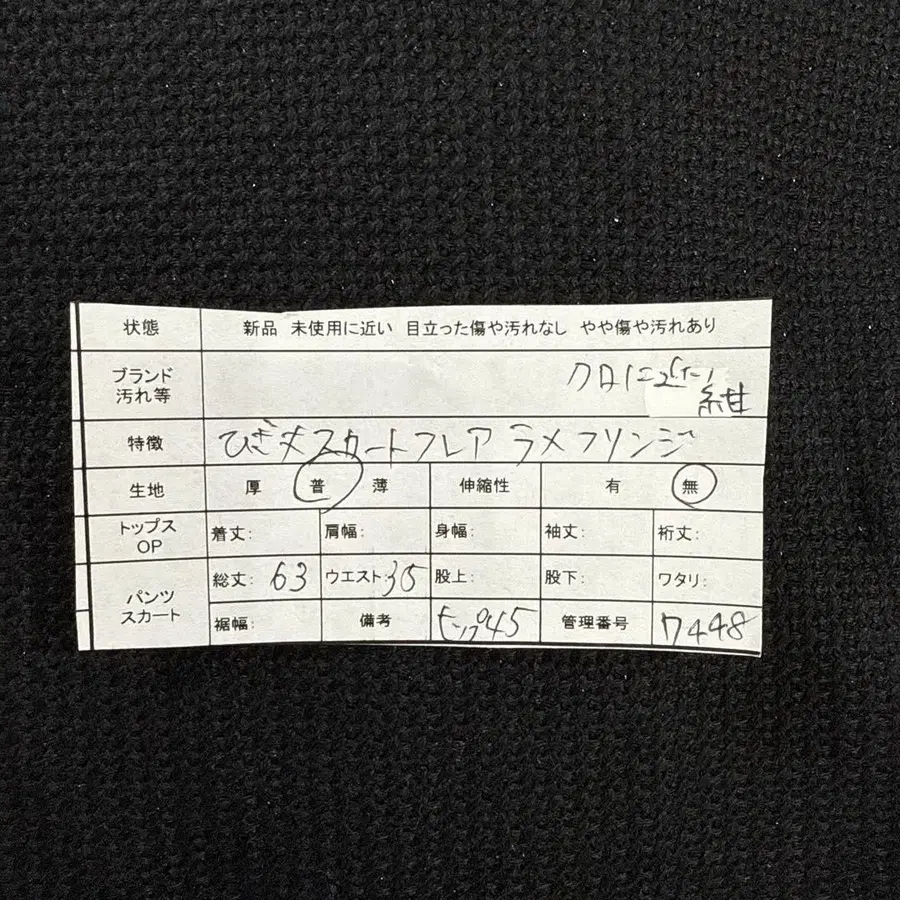 状態 新品 未使用に近い 目立った傷や汚れなし やや傷や汚れあり
ブランド
汚れ等
クロに近い
紺
特徴 ひざ丈スカートフレア ラメフリンジ
生地 厚 普 薄 伸縮性 有 無
トップス
OP
着丈: 肩幅: 身幅: 袖丈: 裄丈:
パンツ
スカート
総丈: 63 ウエスト: 35 股上: 股下: ワタリ:
裾幅: 備考 ヒップ45 管理番号 7448